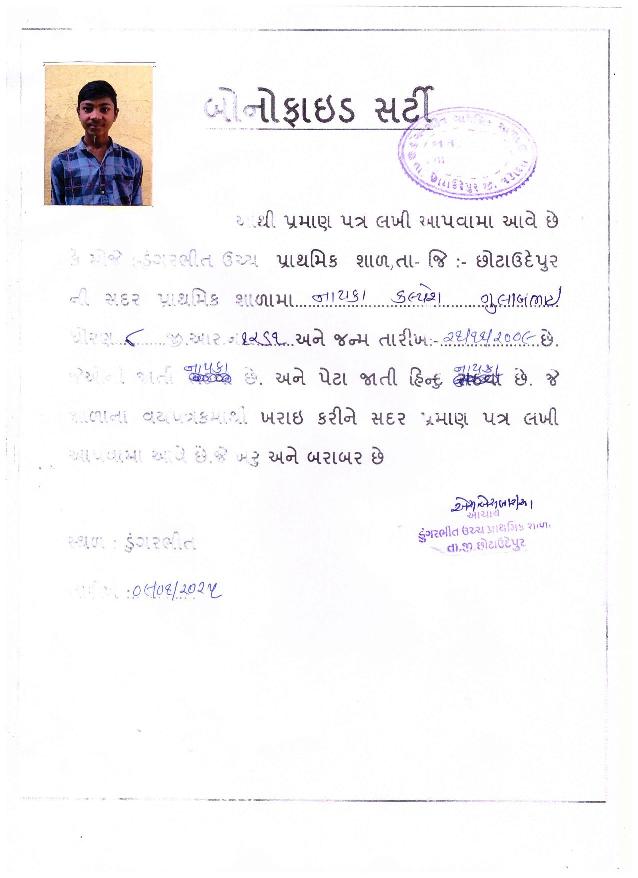 બોનોફાઇડ સર્ટી
આથી પ્રમાણ પત્ર લખી આપવામા આવે છે
કે મોજે :-ડુંગરભીત ઉચ્ચ પ્રાથમિક શાળ,તા- જિ :- છોટાઉદેપુર
ની સદર પ્રાથમિક શાળામા નાયકા કલ્પેશ ગુલાબભાઇ
ધોરણ ૮ જી.આર.નં ૧૨૬૧ અને જન્મ તારીખ:- ૨૧/૧૧/૨૦૦૯ છે.
જેઓની જાતી નાયકા છે. અને પેટા જાતી હિન્દુ નાયકા છે. જે
શાળાના વયપત્રકમાથી ખરાઇ કરીને સદર પ્રમાણ પત્ર લખી
આપવામા આવે છે.જે ખરુ અને બરાબર છે
આચાર્ય
ડુંગરભીત ઉચ્ચ પ્રાથમિક શાળા
તા.જી.છોટાઉદેપુર
સ્થળ : ડુંગરભીત
તારીખ :૦૯/૦૧/૨૦૨૫